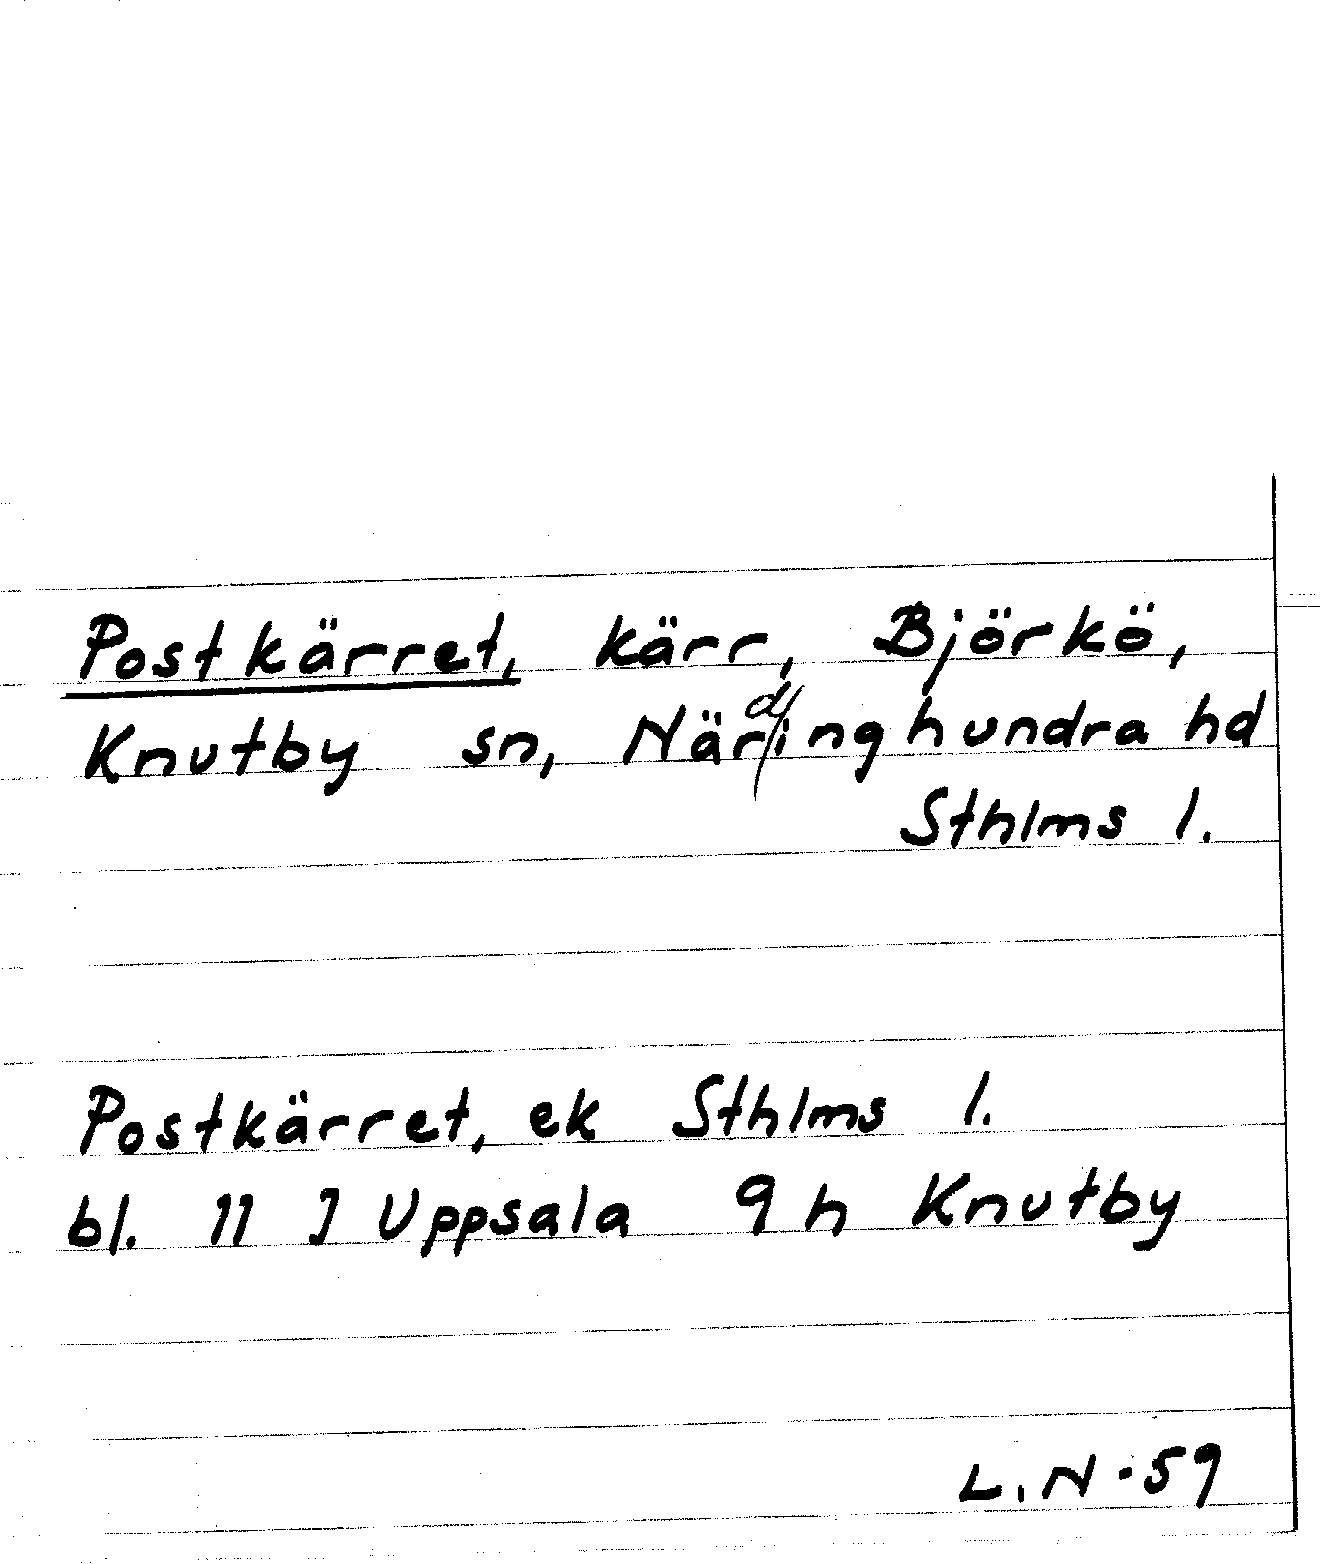 Postkärret, kärr, Björkö,
Knutby sn, Närdinghundra hd
Sthlms l.
Postkärret, ek Sthlms l.
bl. 11 J Uppsala 9 h Knutby
L.N -59